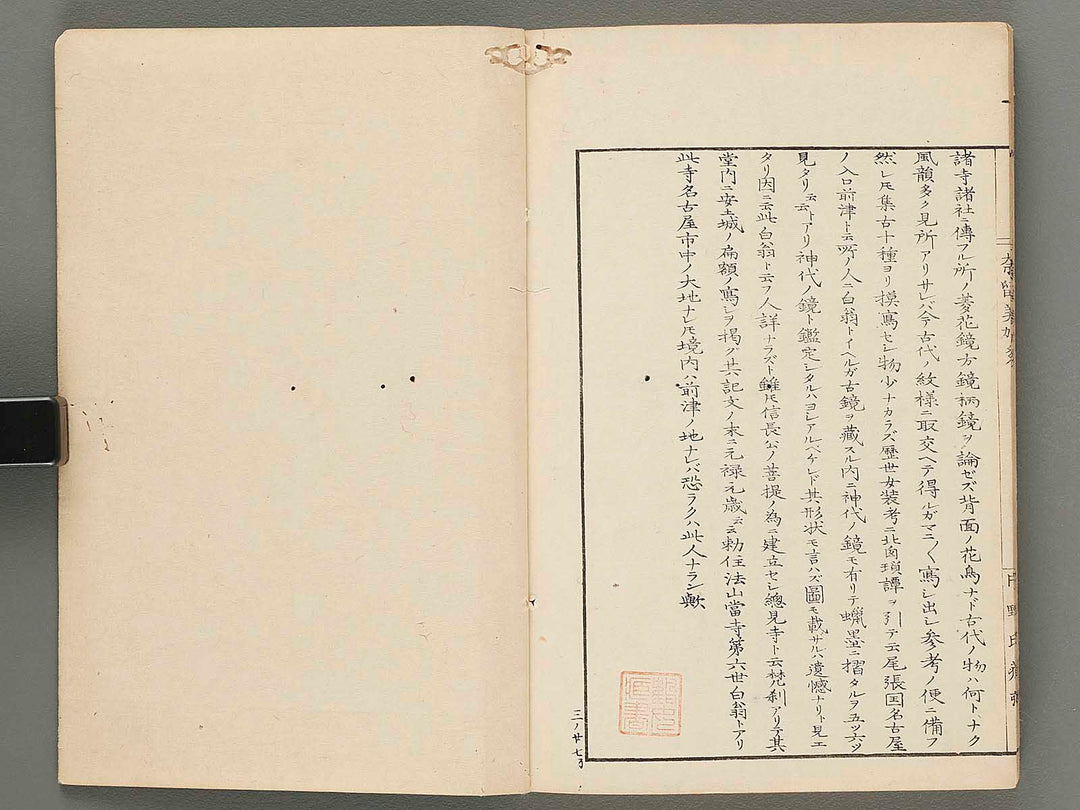 諸寺諸社ニ傳フル所ノ菱花鏡方鏡柄鏡ヲ論ゼズ背面ノ花鳥ナド古代ノ物ハ何トナク
風韻多ク見所アリサレバ今古代紋様ニ取交ヘテ得ルガマニ〱寫シ出シ参考ノ便ニ備フ
然レ𪜈集古十種ヨリ摸寫セシ物少ナカラズ歴世女装考ニ北窗瑣譚ヲ引テ云尾張国名古屋
ノ入口前津ト云所ノ人ニ白翁トイヘルガ古鏡ヲ藏スル内ニ神代ノ鏡モ有リテ蠟墨ニ摺タルヲ五ツ六ツ
見タリ云云トアリ神代ノ鏡ト鑑定シタルハヨシアルベケレド其形状モ言ハズ圖モ載サルハ遺憾ナリト見エ
タリ因ニ云此白翁ト云フ人詳ナラズト雖𪜈信長公ノ菩提ノ為ニ建立セシ總見寺ト云梵刹アリテ其
堂内ニ安土城ノ扁額ノ寫シヲ掲グ其記文ノ末ニ元禄元歳云云勅住法山當寺第六世白翁トアリ
此寺名古屋市中ノ大地ナレ𪜈境内ハ前津ノ地ナレバ恐ラクハ此人ナラン歟
三ノ廿七